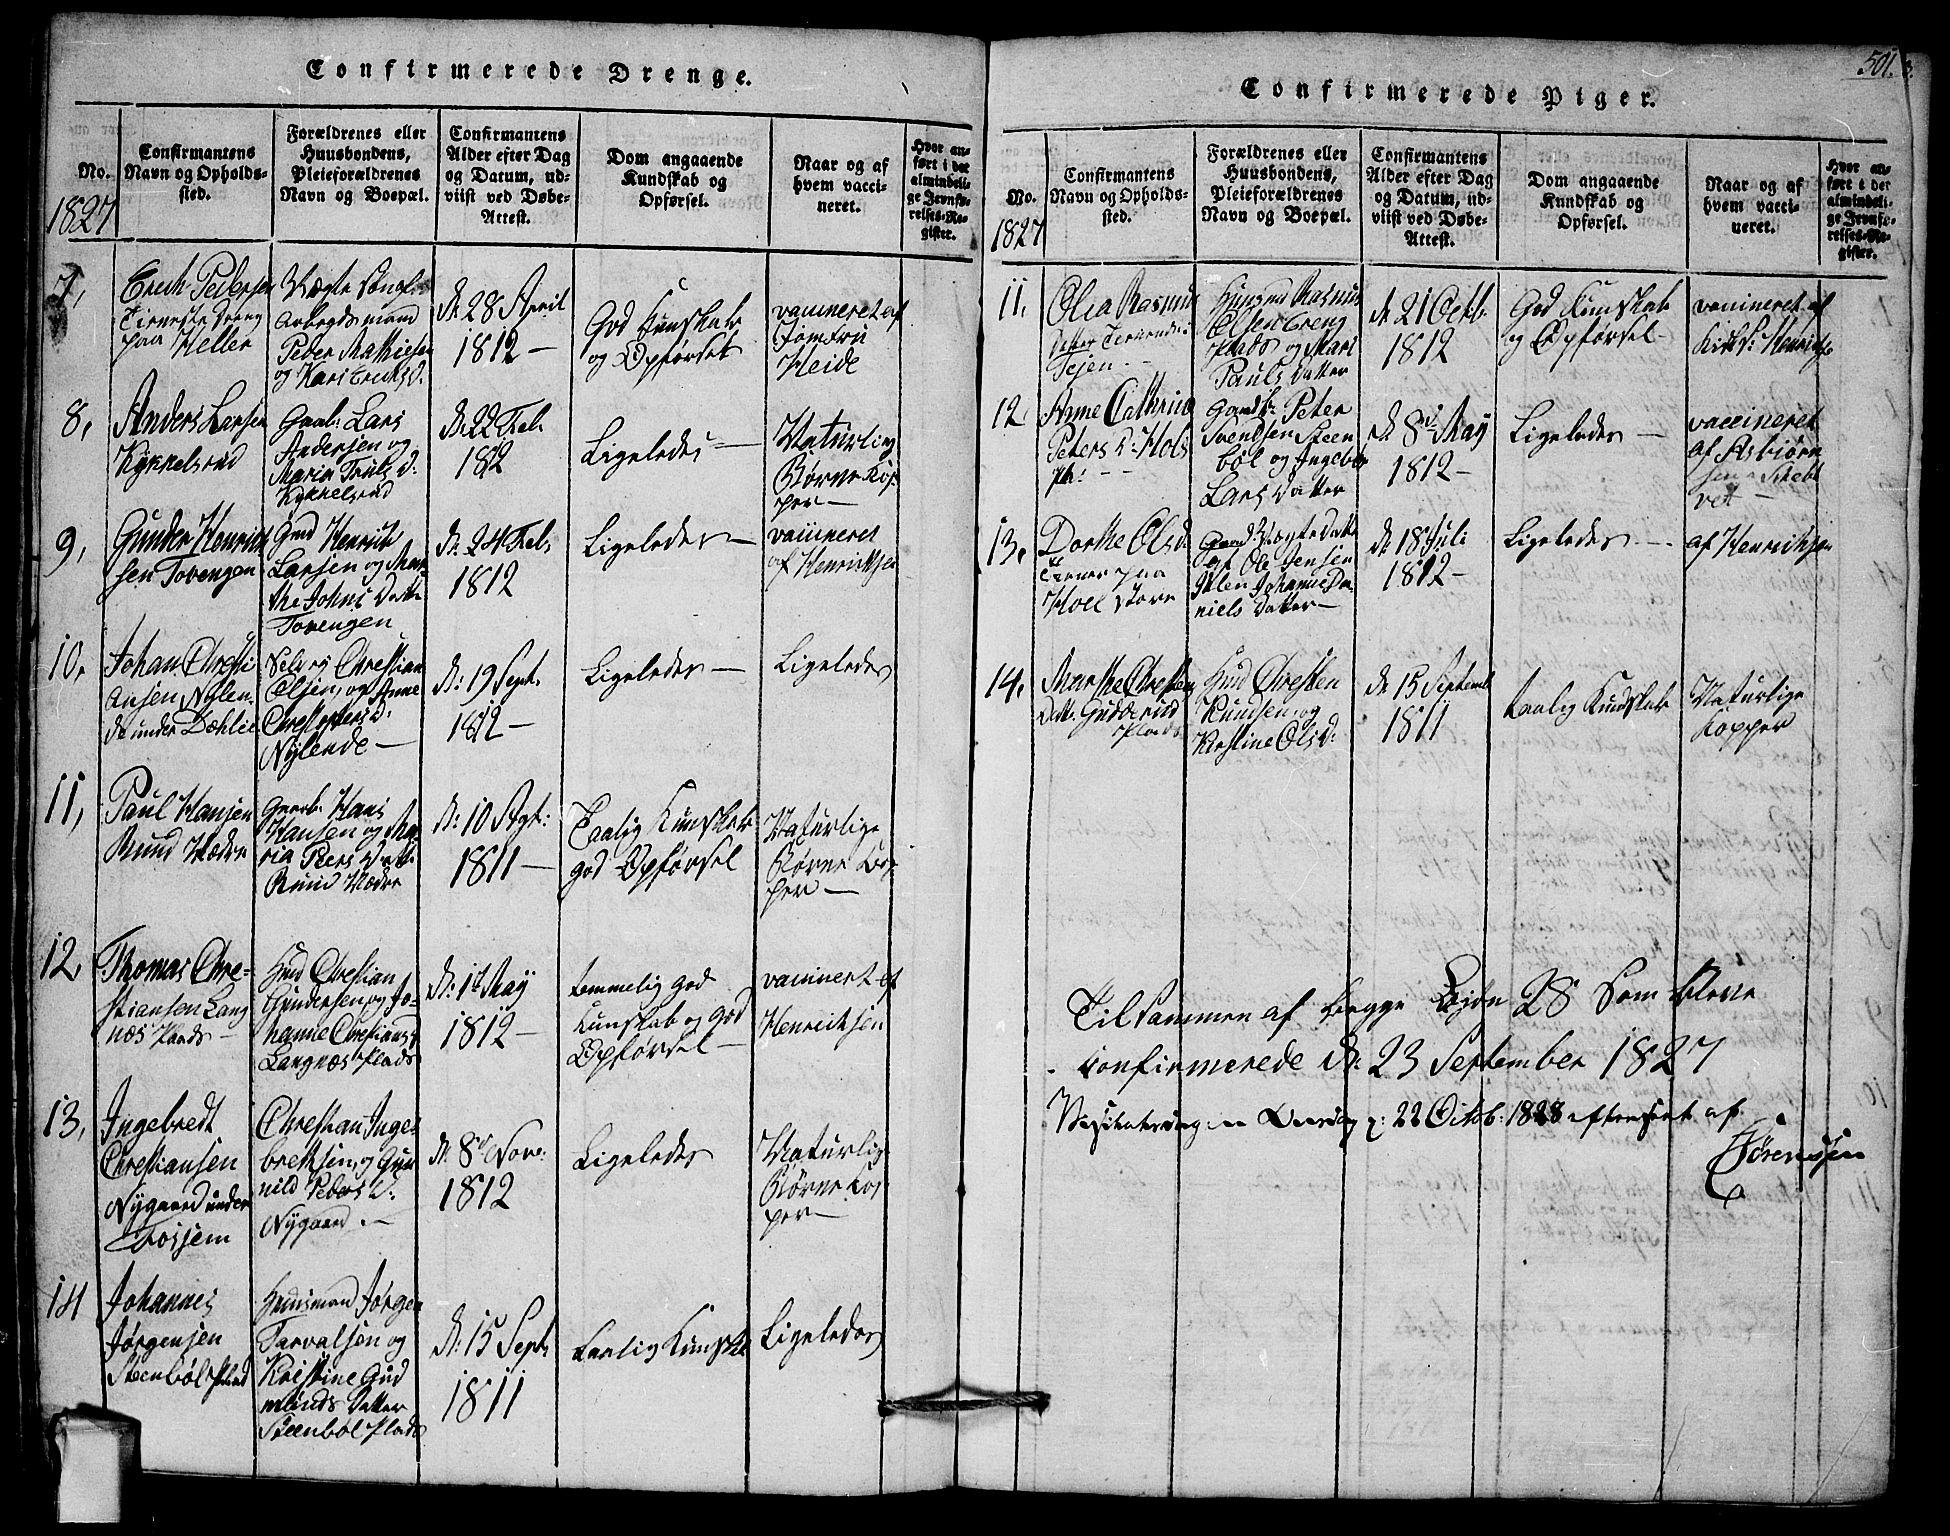 Confirmerede Drenge.
No.
1827
Confirmantens
Navn og Opholds-
sted.
Forældrenes eller
Huusbondens,
Pleieforældrenes
Navn og Boepæl.
Confirmantens
Alder efter Dag
og Datum, ud-
viist ved Døbe-
Attest.
Dom angaaende
Kundskab og
Opførsel.
Naar og af
hvem vacci-
neret.
Hvor an-
ført i det
almindeli-
ge Jevnfø-
relses-Re-
gister.
7,
Erich Pedersen
Tieneste dreng
paa Heller
Arbeydsmand
Peder Mathiesen
og Kari Erichsd:
D: 28 April
1812 —
God Kunskab
og Opførsel
vaccineret af
Jomfru
Heide
8,
Anders Larsen
Kykkelsrud
Gaab: Lars
Andersen og
Maria Truls D:
Kykkelsrud
D: 22 Feb.
1812
Ligeledes —
Naturlig
Børne Kop
per —
9,
Gunder Henrich
sen Tovengen
Gmd Henrich
Larsen og Mar-
the Johns Datter
Tovengen
D: 24 Feb.
1812
Ligeledes —
vaccineret
af Henrichsen
10,
Johan Chresti
ansen, Nylen-
de under Dæhlie
Selv og Chrestian
Olsen, og Anne
Chrestophers D:
Nylende —
D: 19 Sept.
1812 —
Ligeledes —
Ligeledes
11,
Paul Hansen
Ruud Wædre
Gaarb: Hans
Hansen og Ma-
ria Peers Datt:
Ruud Wædre
D: 10 Sept:
1811 —
Taalig Kunskab
god Opførsel
Naturlige
Børne Kop-
per —
12,
Thomas Chre-
stiansen Lang
næs Plads —
Huud Chrestian
Gundersen og Jo-
hanne Chrestians
Langnæs Plads
D: 1d May
1812 —
temmelig God
Kunskab og God
Opførsel —
vaccineret af
Henrichsen
13,
Ingebredt
Chrestiansen
Nygaard under
Fosjem
Chrestian Inge-
bretsen, og Gun
nild Peders D:
Nygaard —
D: 8d Nove:
1812
Ligeledes
Naturlig
Børne Kop-
per —
14
Johannes
Jørgensen
Steenbøl Plads
Huusmand Jørgen
Tarvalsen og
Kristine Gud
munds Datter
Steenbøl Plads
D: 15 Sept.
1811
taalig Kunskab
Ligeledes
501.
Confirmerede Piger.
No.
1827
Confirmantens
Navn og Opholds-
sted.
Forældrenes eller
Huusbondens,
Pleieforældrenes
Navn og Boepæl.
Confirmantens
Alder efter Dag
og Datum, ud-
viist ved Døbe-
Attest.
Dom angaaende
Kundskab og
Opførsel.
Naar og af
hvem vacci-
neret.
Hvor an-
ført i det
almindeli-
ge Jevnfø-
relses-Re-
gister.
11,
Olea Rasmus
Datter
Tejen —
Rasmus
Olsen Ereng
Plads og Mari
Pauls Datter
D: 21 Octb.
1812
God Kunskab
og Opførsel —
vaccineret af
Kirks: Henrichs:
12
Anne Cathrine
Peters D: Hols
Pl: —
Gaardb: Peter
Svendsen Steen
bøl og Ingebor
Lars Datter
D: 8d May
1812 —
Ligeledes —
vaccineret
af Asbiørn
sen
vett —
13,
Dorthe Olsd.
Tiener paa
Hoel Store
Ole Jensen
Johanne Da-
niels Datter —
D: 18 Juli
1812 —
Ligeledes —
af Henrichsen
14,
Marthe Chresten
Datt: Gudderud
Plads
Huud Chresten
Knudsen, og
Kirstine Ols D:
D: 15 Septemb
1811
taalig Kundskab
Naturlige
Kopper
Tilsammen af begge Kiøn 28 Som bleve
confirmerede D: 23 September 1827
22 Octob: 1828 efterseet af
Sørenssen